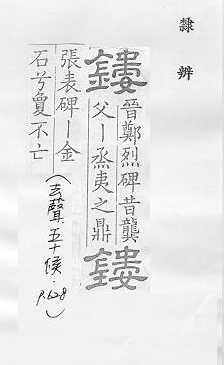 隸辨
鏤
晉鄭烈碑昔龔
父丨烝夷之鼎
鏤
張表碑丨金
石兮敻不亡
(去聲五十候·P.608)